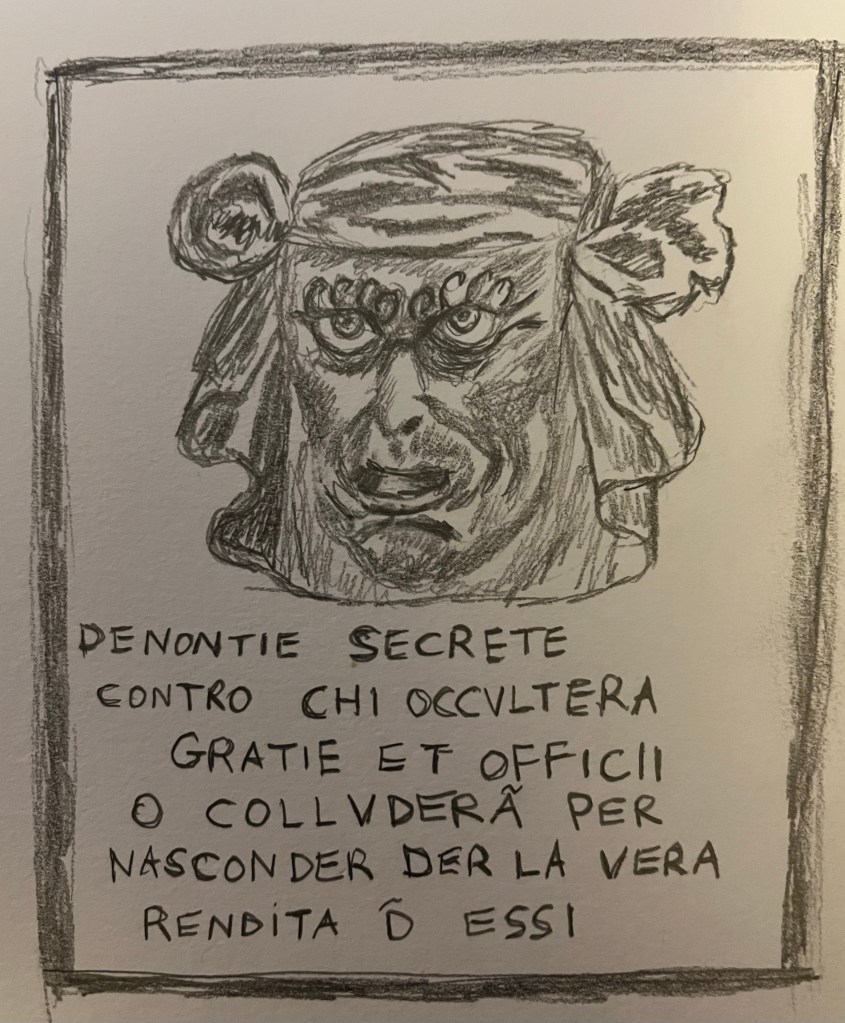 DENONTIE SECRETE
CONTRO CHI OCCVLTERA
GRATIE ET OFFICII
O COLLVDERÃ PER
NASCONDER DER LA VERA
RENDITA D̃ ESSI